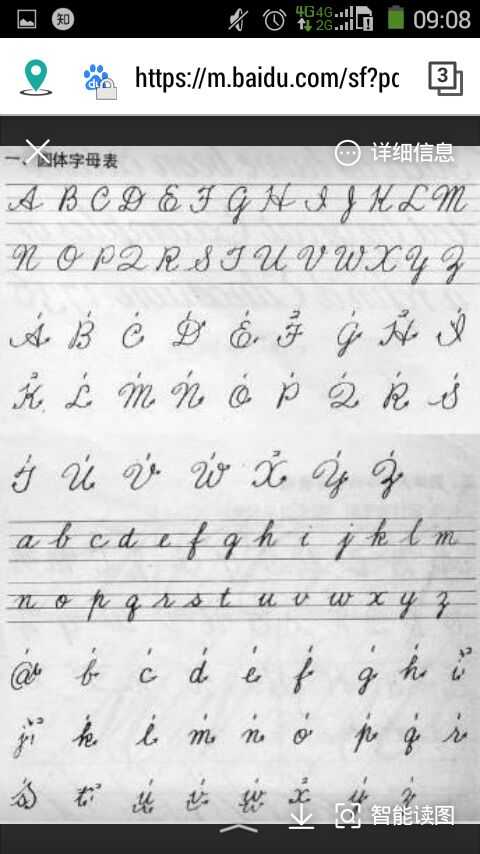 知
4G 4G 2G 1 09:08
https://m.baidu.com/sf?pc
3
du
一、圆体字母表
详细信息
A B C D E F G H I J K L M
N O P Q R S T U V W X Y Z
A B C D E F G H I
K L M N O P Q R S
T U V W X Y Z
a b c d e f g h i j k l m
n o p q r s t u v w x y z
a b c d e f g h i
j k l m n o p q r
s t u v w x y z
智能读图